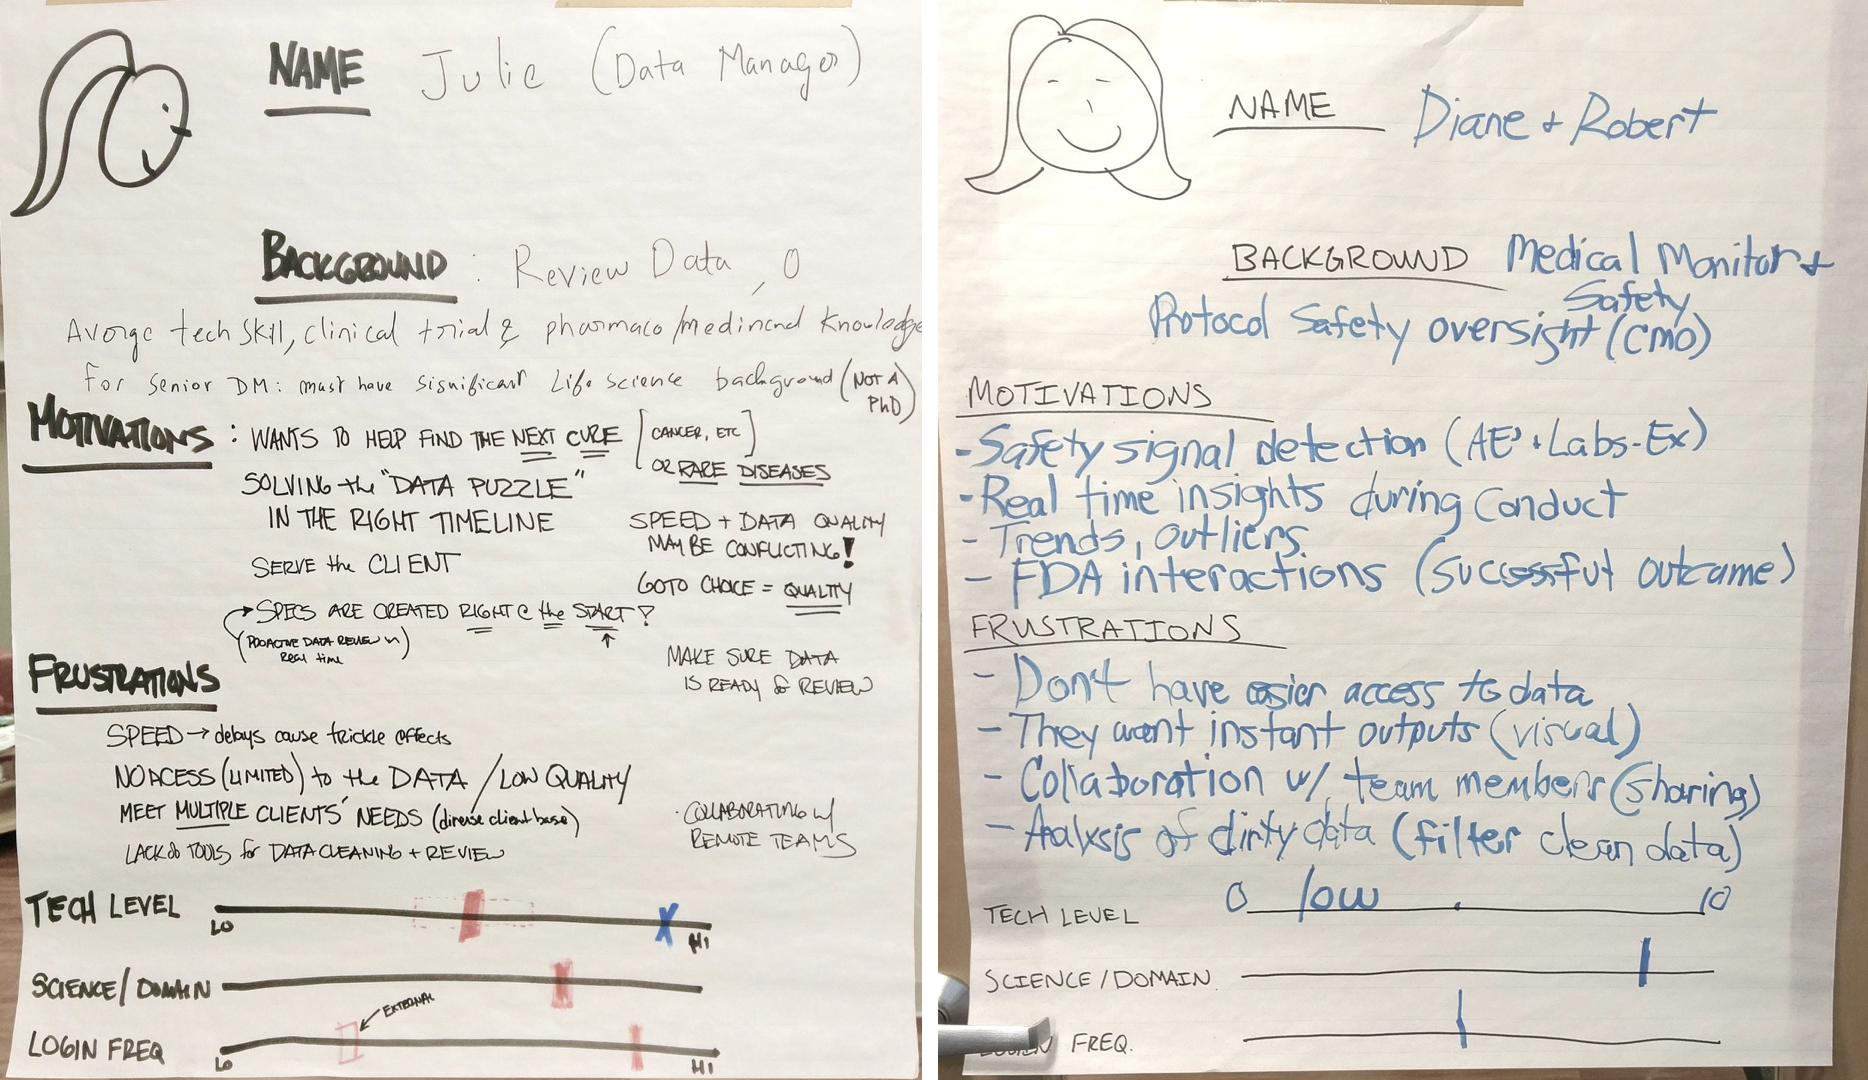 NAME Julie (Data Manager)
BACKGROUND : Review Data, O
Avorge tech skill, clinical trial & pharmaco/medincnd knowledge
for senior DM: must have significant Life science background (NOT A PhD)
MOTIVATIONS : WANTS TO HELP FIND THE NEXT CURE [CANCER, ETC]
OR RARE DISEASES
SOLVING the "DATA PUZZLE"
IN THE RIGHT TIMELINE
SPEED + DATA QUALITY
MAY BE CONFLICTING!
SERVE the CLIENT
GOTO CHOICE = QUALITY
SPECS ARE CREATED RIGHT @ the START?
(PROACTIVE DATA REVIEW in
Real time)
MAKE SURE DATA
IS READY & REVIEW
FRUSTRATIONS
SPEED → delays cause trickle effects
NO ACESS (LIMITED) to the DATA / LOW QUALITY
MEET MULTIPLE CLIENTS' NEEDS (diverse client base)
LACK OF TOOLS for DATA CLEANING + REVIEW
· COLLABORATING w/
REMOTE TEAMS
TECH LEVEL
LO X HI
SCIENCE/DOMAIN
EXTERNAL
LOGIN FREQ
LO HI
NAME Diane + Robert
BACKGROUND Medical Monitor +
Safety
Protocol Safety oversight (CMO)
MOTIVATIONS
- Safety signal detection (AE's + Labs-Ex)
- Real time insights during conduct
- Trends, outliers
- FDA interactions (successful outcome)
FRUSTRATIONS
- Don't have easier access to data
- They want instant outputs (visual)
- Collaboration w/ team members (sharing)
- Aalysis of dirty data (filter clean data)
TECH LEVEL 0 low 10
SCIENCE/DOMAIN
FREQ.